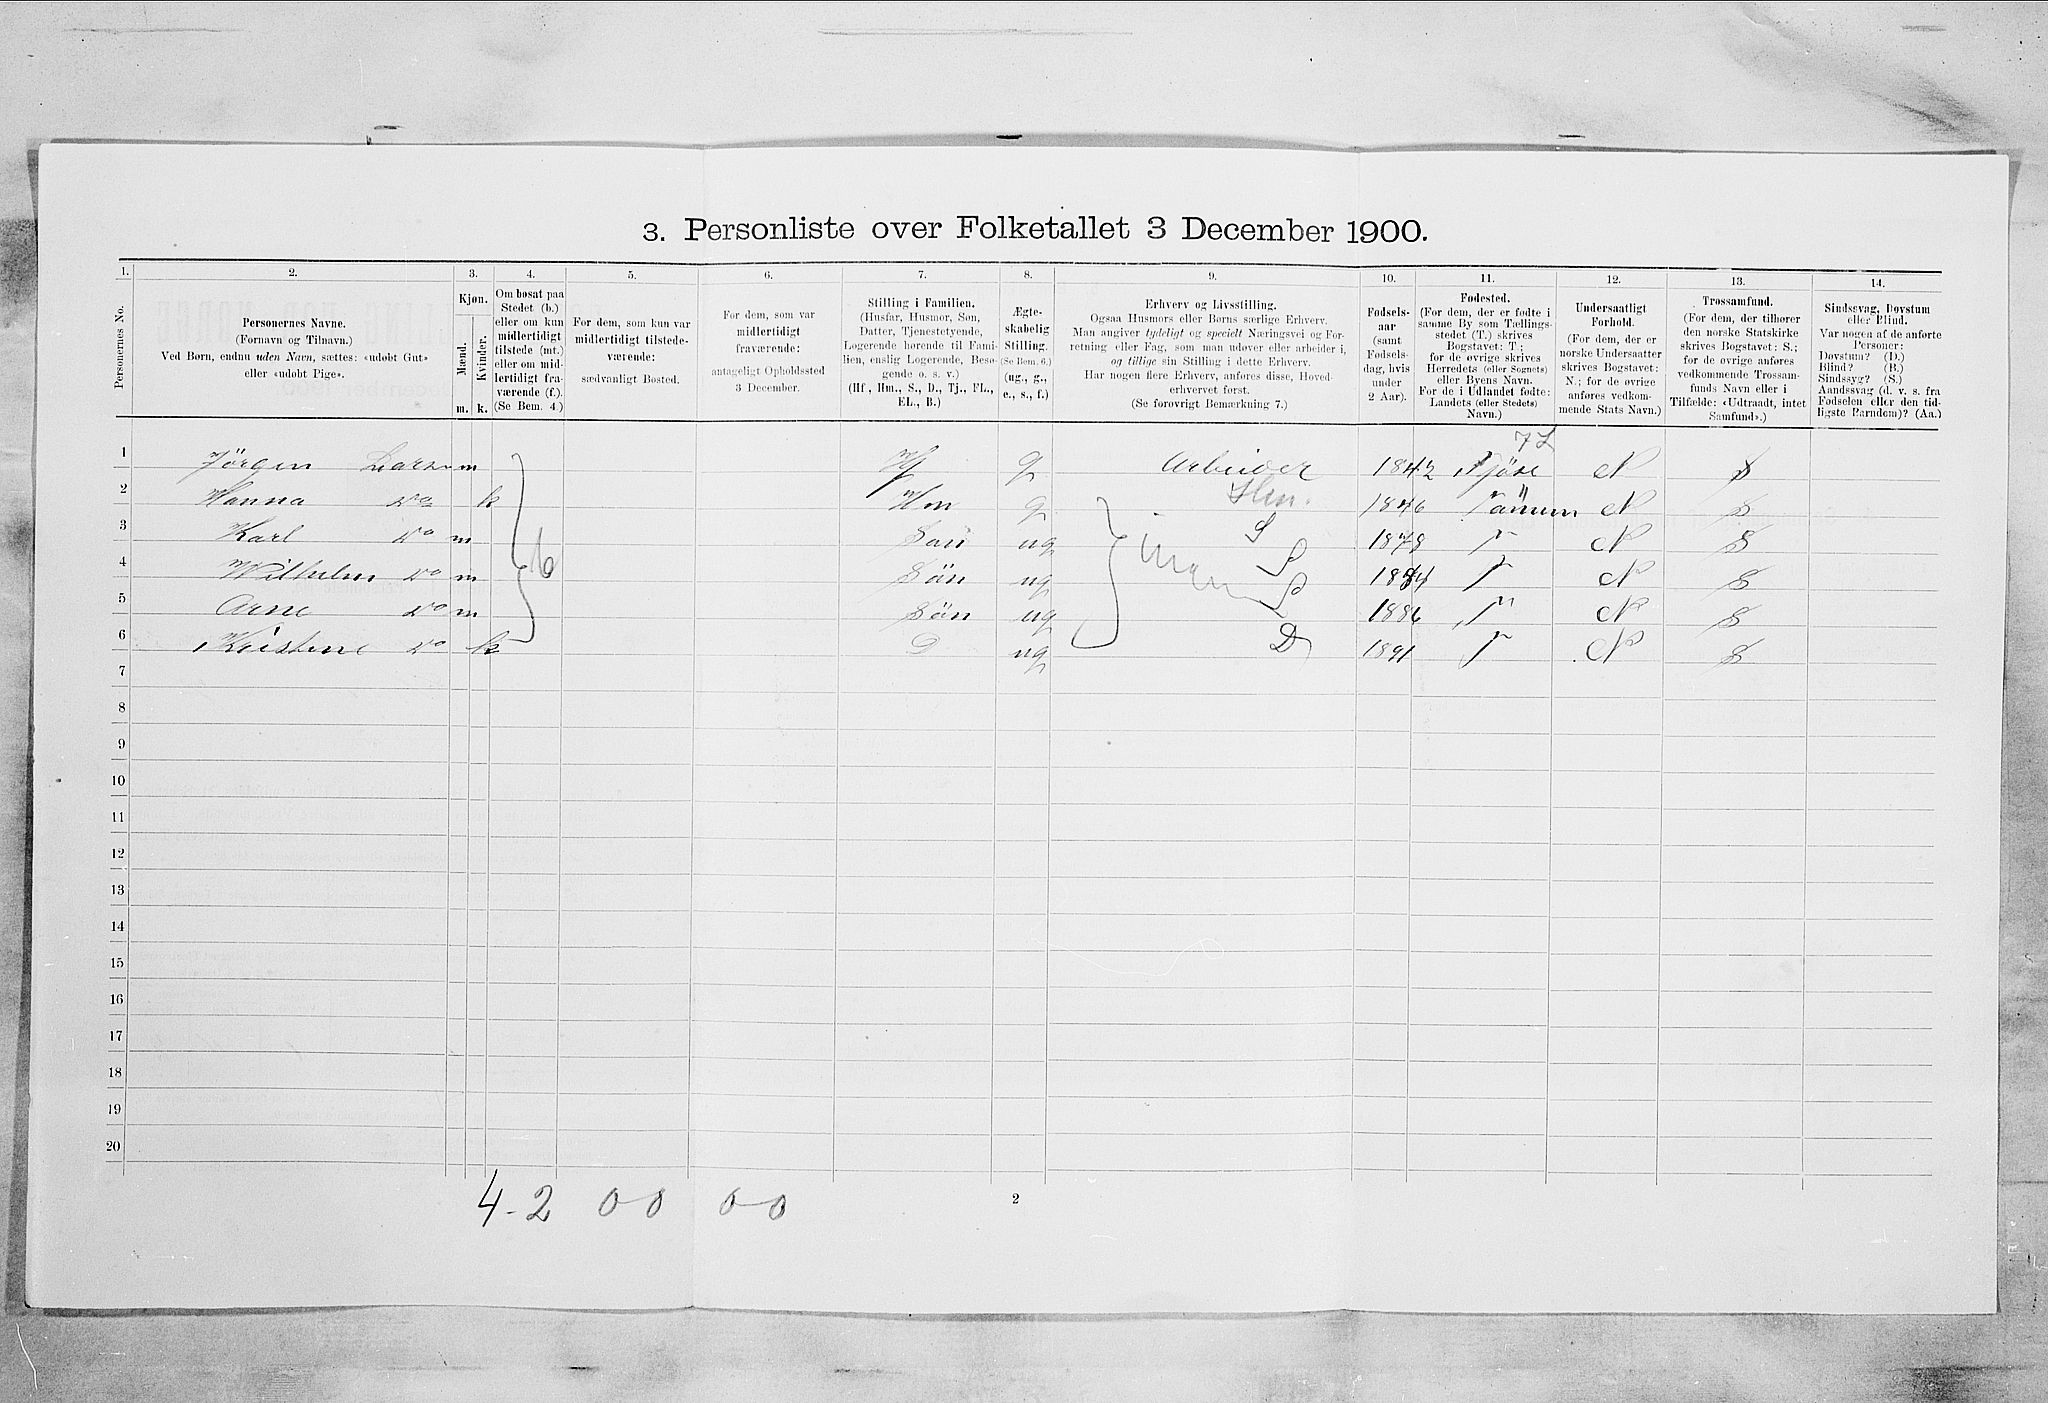 3. Personliste over Folketallet 3 December 1900.
1. 2. 3. 4. 5. 6. 7. 8. 9. 10. 11. 12. 13. 14.
Personernes No.
Personernes Navne.
(Fornavn og Tilnavn.)
Ved Børn, endnu uden Navn, sættes: «udøbt Gut»
eller «udøbt Pige».
Kjøn.
Mænd.
Kvinder.
m. k.
Om bosat paa
Stedet (b.)
eller om kun
midlertidigt
tilstede (mt.)
eller om mid-
lertidigt fra-
værende (f.).
(Se Bem. 4.)
For dem, som kun var
midlertidigt tilstede-
værende:
sædvanligt Bosted.
For dem, som var
midlertidigt
fraværende:
antageligt Opholdssted
3 December.
Stilling i Familien.
(Husfar, Husmor, Søn,
Datter, Tjenestetyende,
Logerende hørende til Fami-
lien, enslig Logerende, Besø-
gende o. s. v.)
(Hf, Hm., S., D., Tj., FL.,
EL., B.)
Ægte-
skabelig
Stilling.
(Se Bem. 6.)
(ug., g.,
e., s., f.)
Erhverv og Livsstilling.
Ogsaa Husmors eller Børns særlige Erhverv.
Man angiver tydeligt og specielt Næringsvei og For-
retning eller Fag, som man udøver eller arbeider i,
og tillige sin Stilling i dette Erhverv.
Har nogen flere Erhverv, anføres disse, Hoved-
erhvervet først.
(Se forøvrigt Bemærkning 7.)
Fødsels-
aar
(samt
Fødsels-
dag, hvis
under
2 Aar).
Fødested.
(For dem, der er fødte i
samme By som Tællings-
stedet (T.) skrives
Bogstavet: T.;
for de øvrige skrives
Herredets (eller Sognets)
eller Byens Navn.
For de i Udlandet fødte:
Landets (eller Stedets)
Navn.)
Undersaatligt
Forhold.
(For dem, der er
norske Undersaatter
skrives Bogstavet:
N.; for de øvrige
anføres vedkom-
mende Stats Navn.)
Trossamfund.
(For dem, der tilhører
den norske Statskirke
skrives Bogstavet: S.;
for de øvrige anføres
vedkommende Trossam-
funds Navn eller i
Tilfælde: «Udtraadt, intet
Samfund».)
Sindssvag, Døvstum
eller Blind.
Var nogen af de anførte
Personer:
Døvstum? (D.)
Blind? (B.)
Sindssyg? (S.)
Aandssvag (d. v. s. fra
Fødselen eller den tid-
ligste Barndom)? (Aa.)
1 Jörgen Larsen m Hf g Arbeider 1842 Njöse N S
2 Hanna Do k Hm g Hm. 1846 Tanum N S
3 Karl Do m b Sön ug S 1878 T N S
4 Wilhelm Do m Sön ug S 1884 T N S
5 Arne Do m Sön ug S 1886 T N S
6 Kristine Do k D ug D 1891 T N S
7
8
9
10
11
12
13
14
15
16
17
18
19
20
4-2 0-0 0-0
2